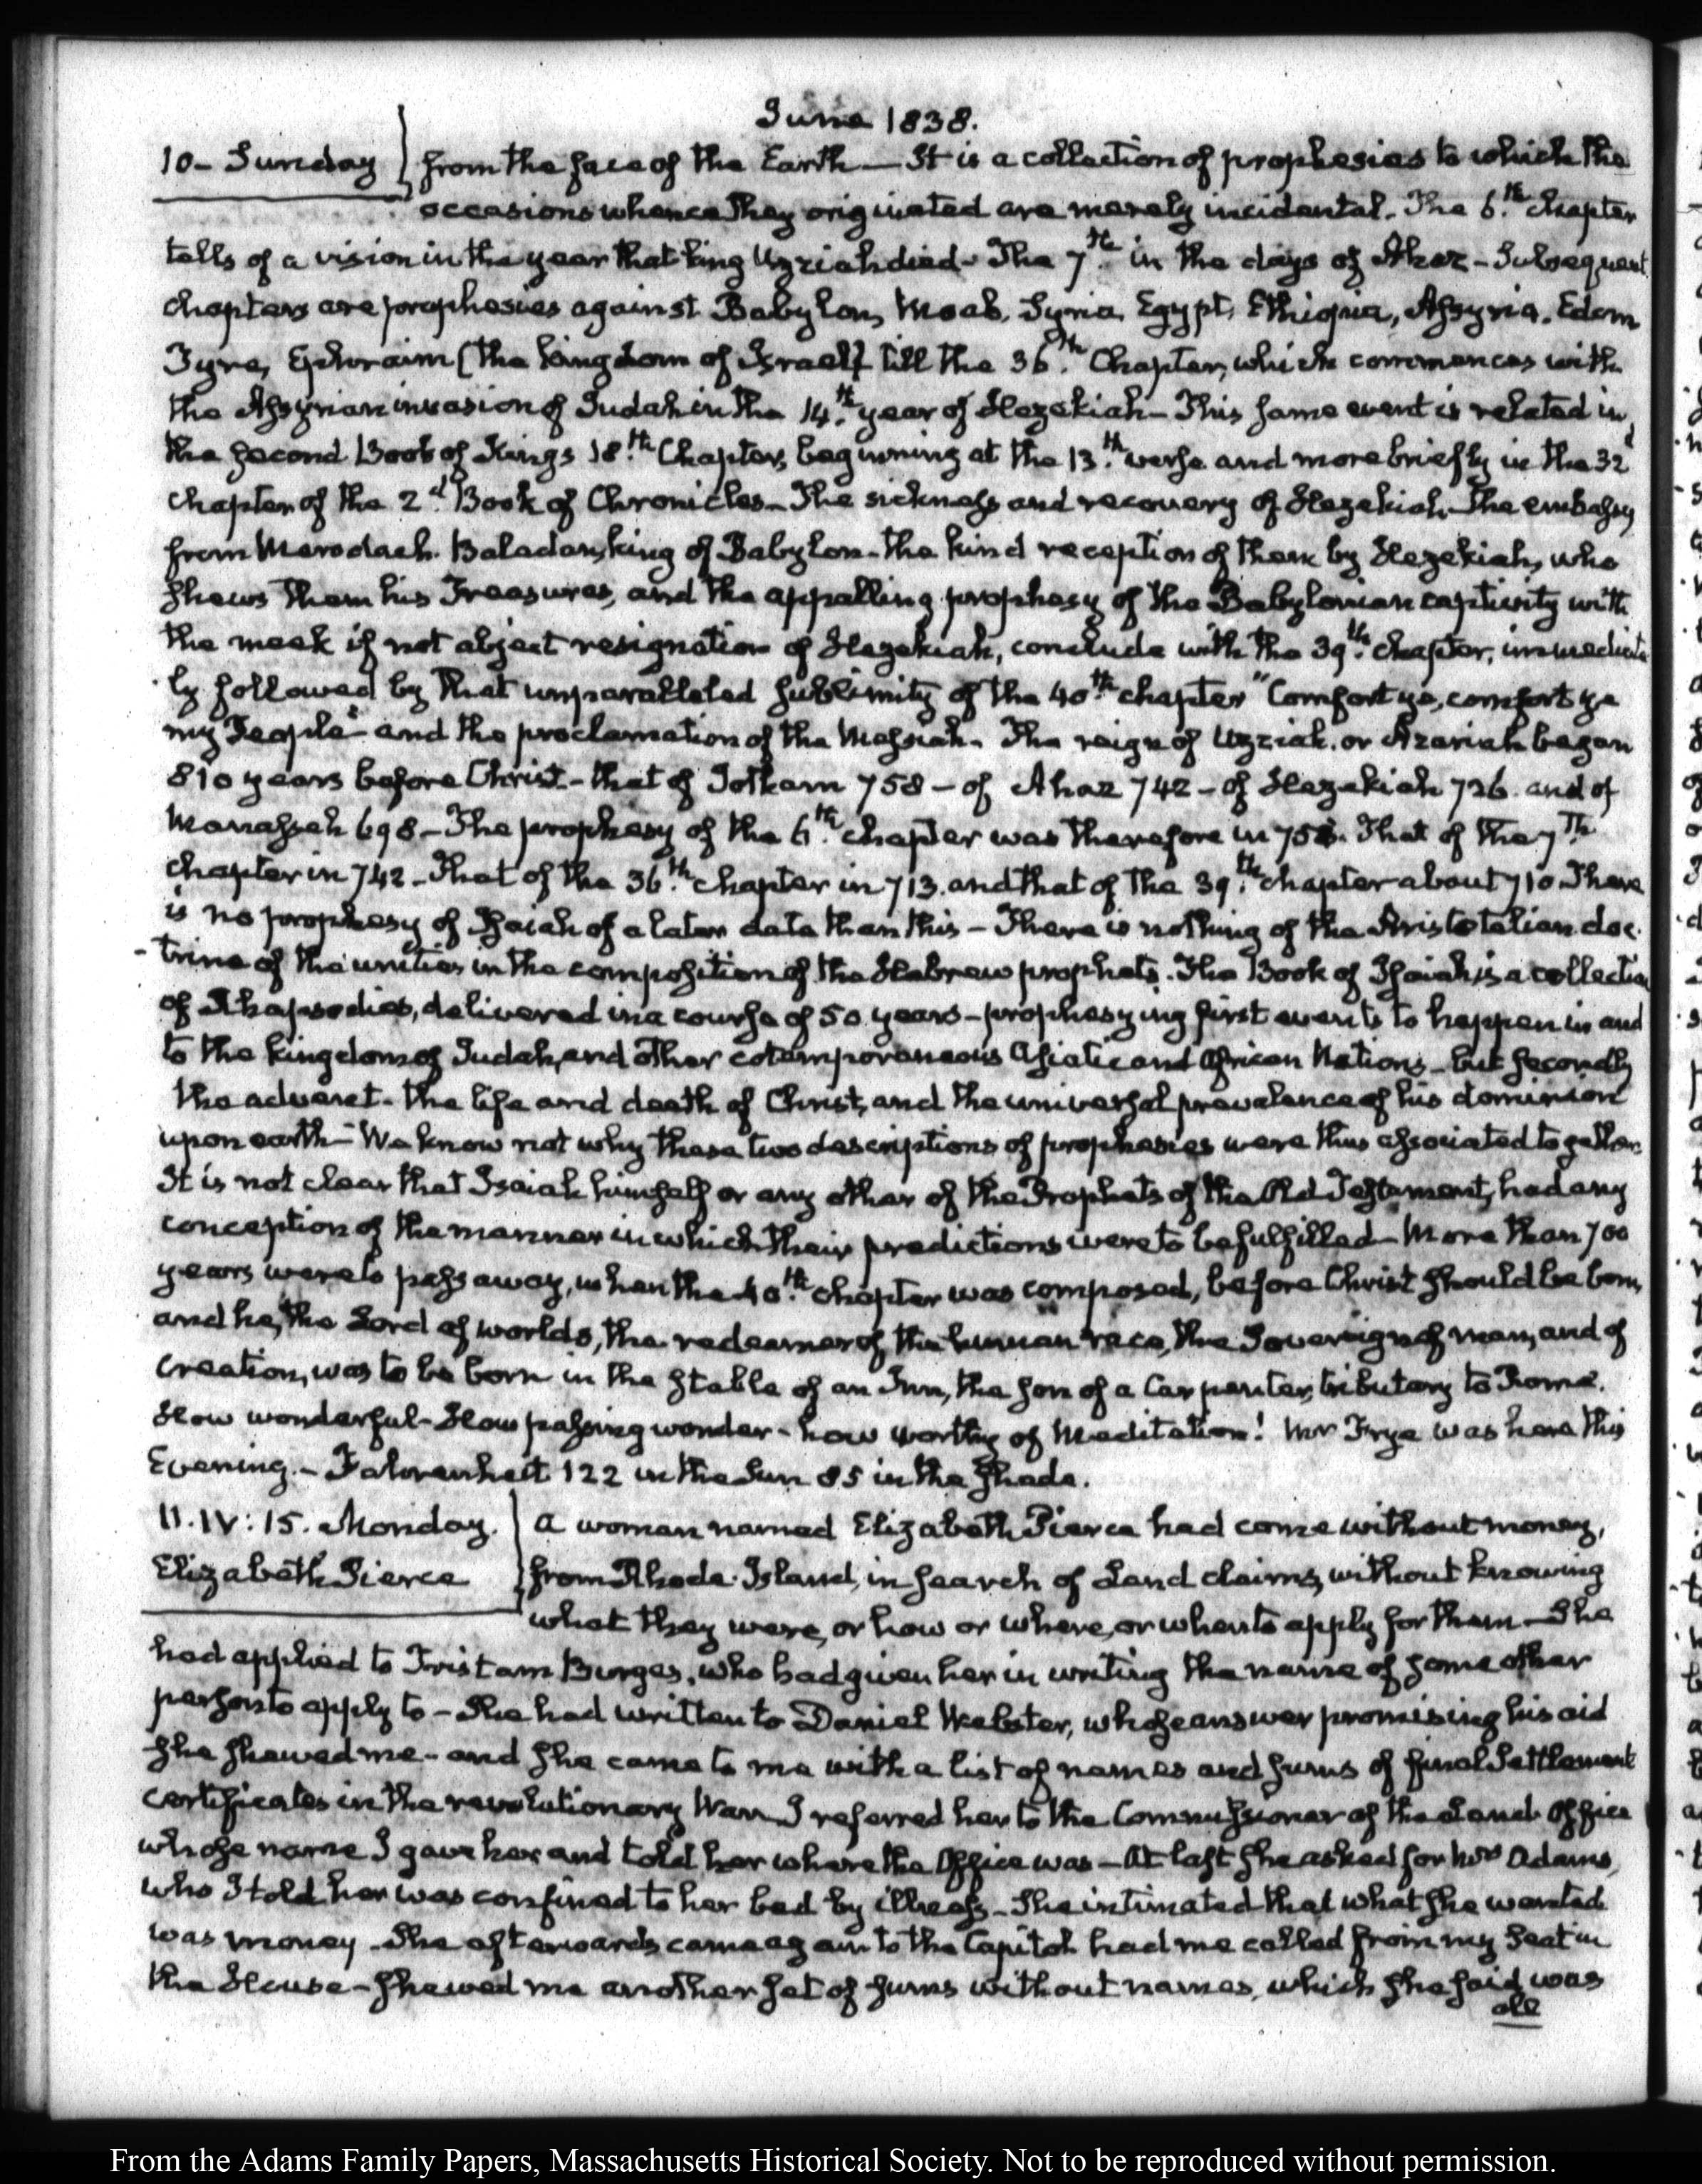 June 1838.
10 - Sunday
from the face of the Earth — It is a collection of prophesies to which the
occasions whence they originated are merely incidental. The 6.th chapter
tells of a vision in the year that king Uzziah died - The 7.th in the days of Ahaz - Subsequent
chapters are prophesies against Babylon, Moab, Syria, Egypt, Ethiopia, Assyria, Edom
Tyre, Ephraim (the kingdom of Israel) till the 36.th Chapter, which commences with
the Assyrian invasion of Judah in the 14.th year of Hezekiah - This same event is related in
the second Book of Kings 18.th Chapter, beginning at the 13.th verse and more briefly in the 32d
chapter of the 2.d Book of Chronicles - The sickness and recovery of Hezekiah. The embassy
from Merodach. Baladan, king of Babylon - the kind reception of them by Hezekiah, who
shews them his Treasures, and the appalling prophesy of the Babylonian captivity with
the meek if not abject resignation of Hezekiah, conclude with the 39.th chapter, immediate
ly followed by that unparalleled sublimity of the 40.th chapter "Comfort ye, comfort ye
my People" and the proclamation of the Messiah. The reign of Uzziah. or Azariah began
810 years before Christ - that of Jotham 758 - of Ahaz 742 - of Hezekiah 726. and of
Manasseh 698 - The prophesy of the 6.th chapter was therefore in 758. That of the 7.Th
chapter in 742 - That of the 36.th chapter in 713. and that of the 39.th chapter about 710 There
is no prophesy of Isaiah of a later date than this - There is nothing of the Aristotelian doc-
-trine of the unities in the composition of the Hebrew prophets. The Book of Isaiah is a collection
of Rhapsodies, delivered in a course of 50 years - prophesying first events to happen in and
to the kingdom of Judah, and other cotemporaneous Asiatic and African Nations - but secondly
the advent - the life and death of Christ, and the universal prevalence of his dominion
upon earth - We know not why these two descriptions of prophesies were thus associated together.
It is not clear that Isaiah himself or any other of the Prophets of the Old Testament, had any
conception of the manner in which their predictions were to be fulfilled - More than 700
years were to pass away, when the 40.th chapter was composed, before Christ should be born,
and he, the Lord of worlds, the redeemer of the human race, the Sovereign of man, and of
creation, was to be born in the stable of an Inn, the son of a Carpenter, tributary to Rome.
How wonderful - How passing wonder - how worthy of Meditation! Mr Frye was here this
Evening. - Fahrenheit 122 in the Sun 85 in the shade.
11. IV: 15. Monday.
Elizabeth Pierce
A woman named Elizabeth Pierce had come without money,
from Rhode-Island, in search of Land claims, without knowing
what they were, or how or where, or when to apply for them - She
had applied to Tristam Burges, who had given her in writing the name of some other
person to apply to - She had written to Daniel Webster, whose answer promising his aid
she shewed me - and she came to me with a list of names and sums of final Settlement
certificates in the revolutionary War. I referred her to the Commissioner of the Land Office
whose name I gave her and told her where the Office was - At last she asked for Mrs Adams,
who I told her was confined to her bed by illness - She intimated that what she wanted
was money - She afterwards came again to the Capitol had me called from my seat in
the House - shewed me another set of sums without names, which she said was
all
From the Adams Family Papers, Massachusetts Historical Society. Not to be reproduced without permission.